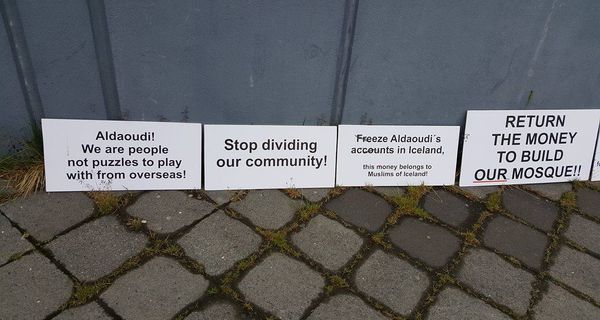 Aldaoudi!
We are people
not puzzles to play
with from overseas!
Stop dividing
our community!
Freeze Aldaoudi´s
accounts in Iceland,
this money belongs to
Muslims of Iceland!
RETURN
THE MONEY
TO BUILD
OUR MOSQUE!!